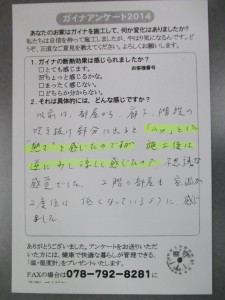 ガイナアンケート2014
あなたのお家はガイナを施工して、何か変化はありましたか?
私たちは自信を持って施工しましたが、やはり気になるんです。ど
うぞ、正直なご意見を教えてください。よろしくお願いします。
1. ガイナの断熱効果は感じられましたか?
□とても感じます。 お客様番号
☑ちょっと感じるかな。
□まったく感じない。
□どちらか分からない。
2. それは具体的には、どんな感じですか?
以前は、部屋から、廊下、階段の
吹き抜け部分に出ると「ムッ」とした
熱さを感じたのですが 施工後は
逆に少し涼しく感じたので 不思議な
感覚でした。2階の部屋も室温が
2度位は 低くなっているように感じ
ました。
ありがとうございました。アンケートをお送りいただ
いた方には、健康で快適な暮らしが管理できる、
「温・湿度計」をプレゼントいたします。
FAXの場合は 078-792-8281に